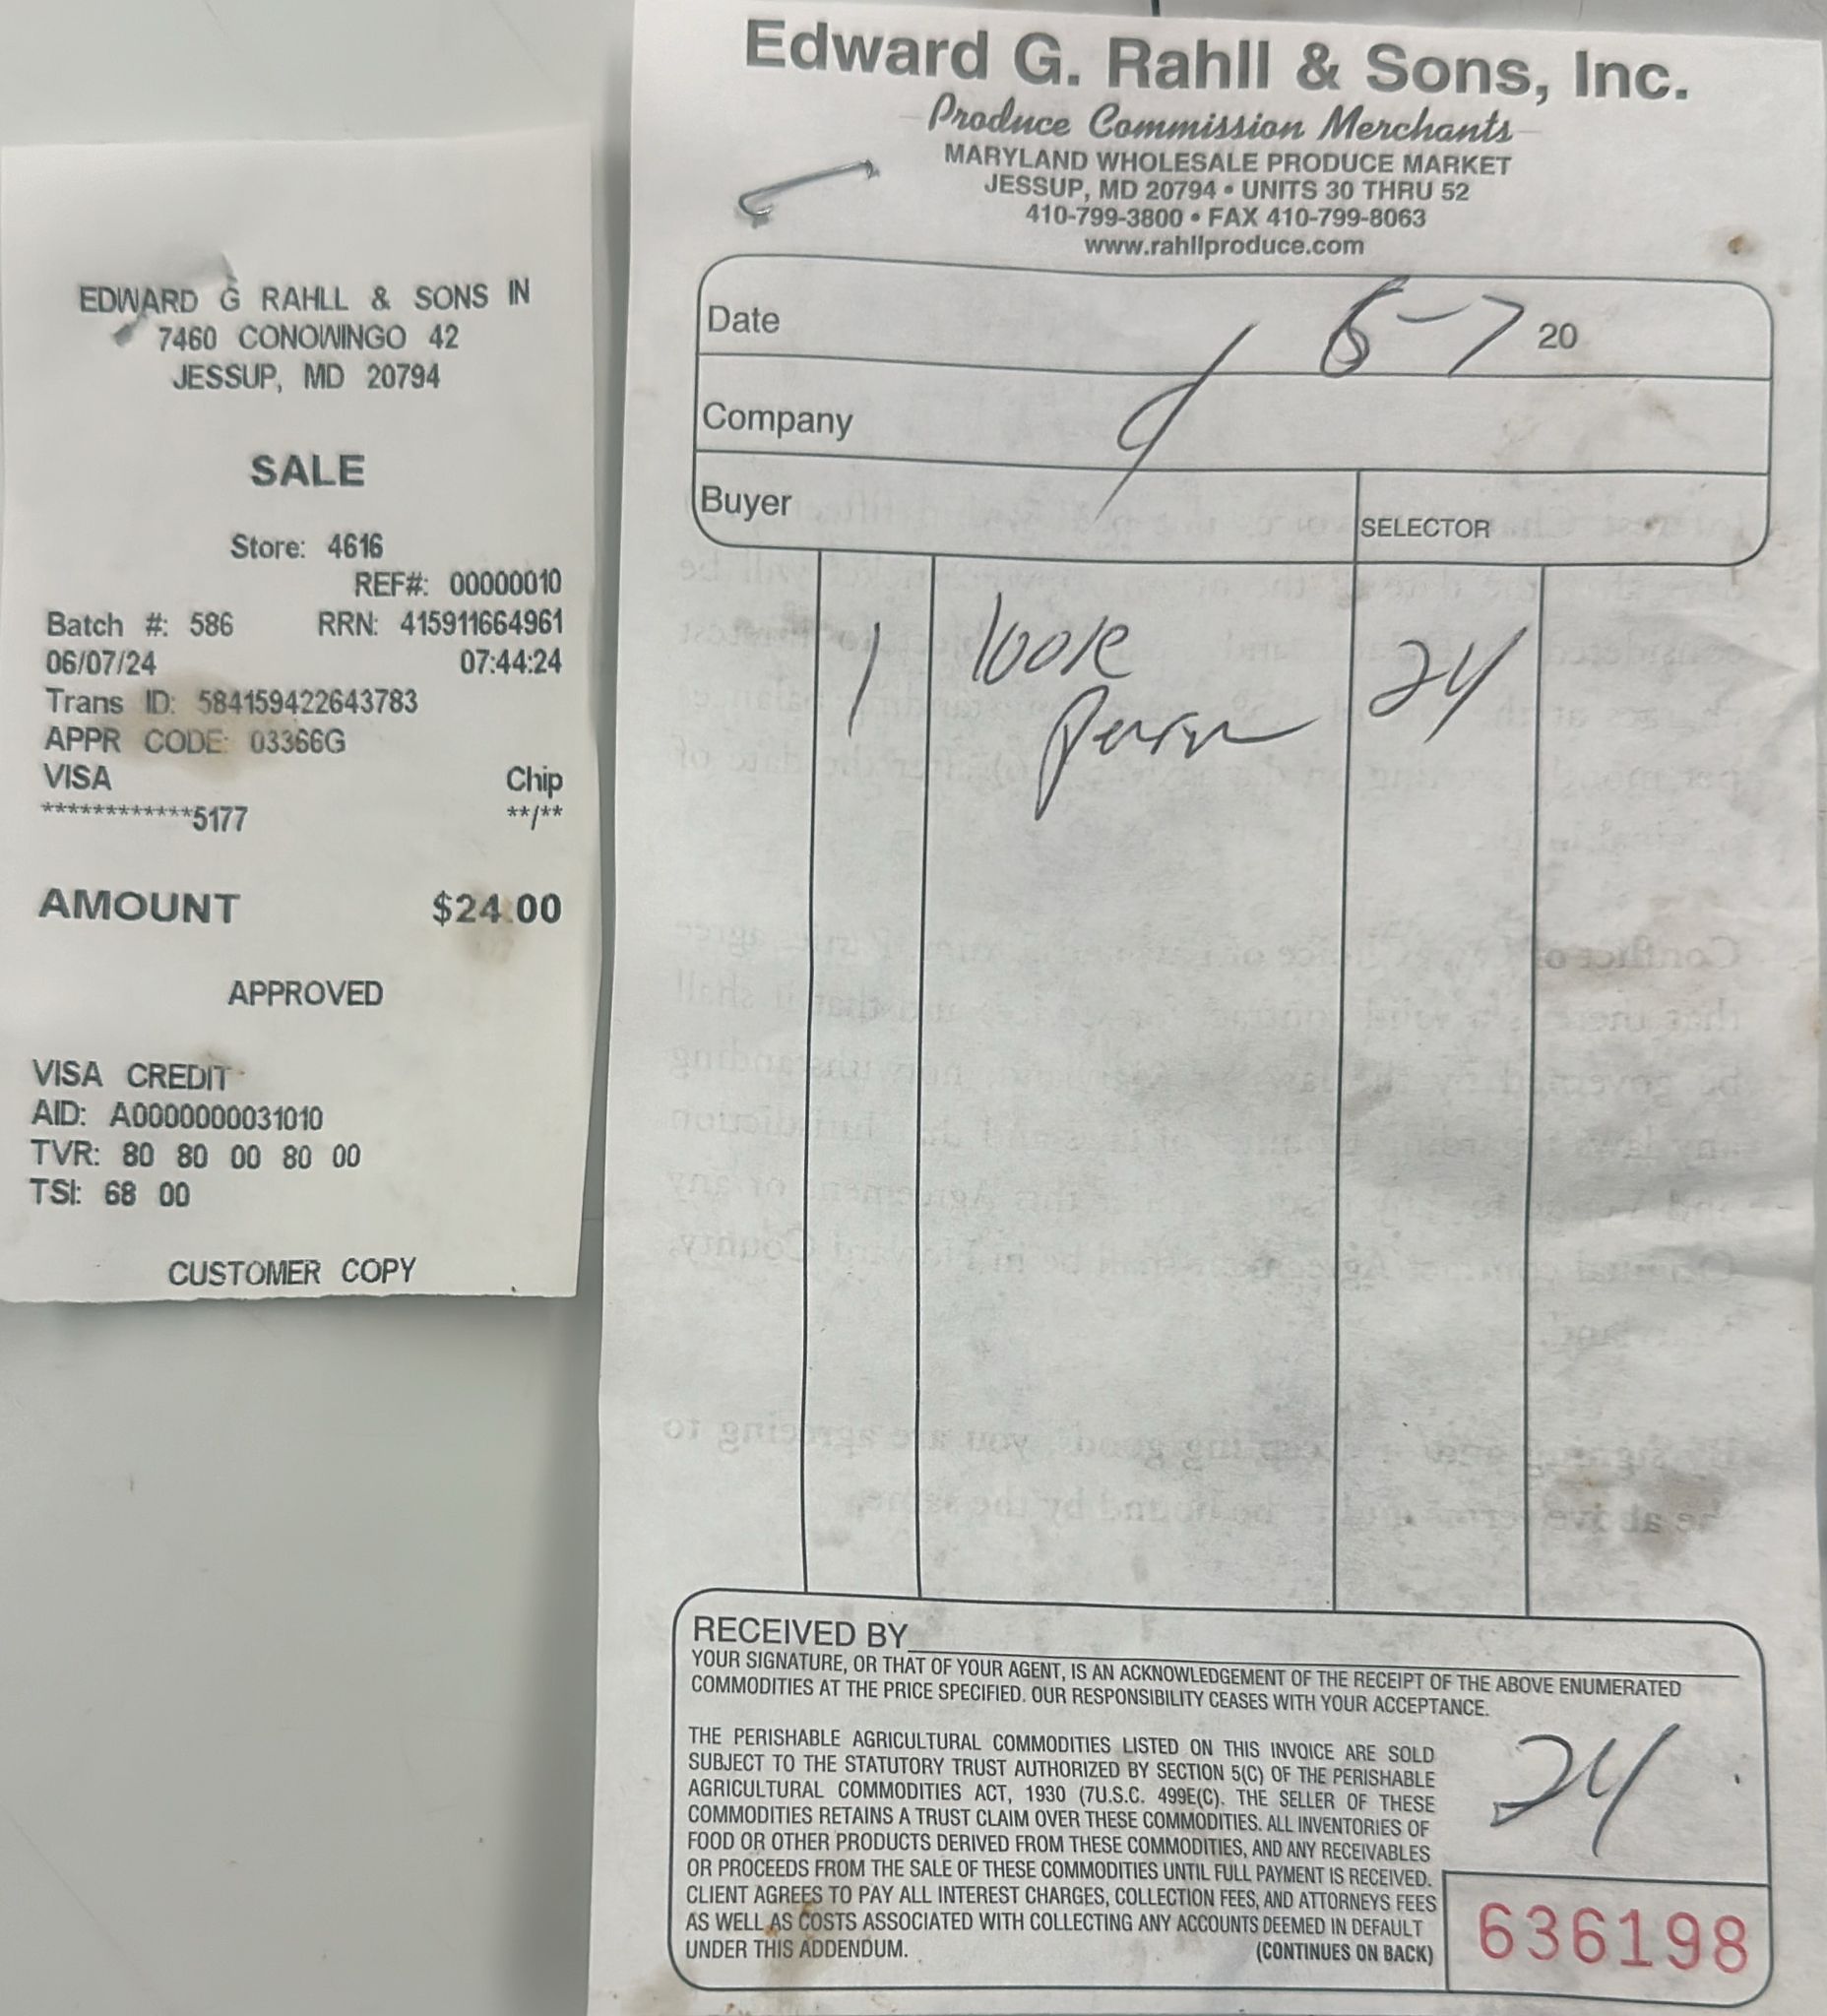 EDWARD G RAHLL & SONS IN
7460 CONOWINGO 42
JESSUP, MD 20794
SALE
Store: 4616
REF#: 00000010
Batch #: 586 RRN: 415911664961
06/07/24 07:44:24
Trans ID: 584159422643783
APPR CODE: 03366G
VISA Chip
************5177 **/**
AMOUNT $24.00
APPROVED
VISA CREDIT
AID: A0000000031010
TVR: 80 80 00 80 00
TSI: 68 00
CUSTOMER COPY
Edward G. Rahll & Sons, Inc.
Produce Commission Merchants
MARYLAND WHOLESALE PRODUCE MARKET
JESSUP, MD 20794 • UNITS 30 THRU 52
410-799-3800 • FAX 410-799-8063
www.rahllproduce.com
Date 6-7 20
Company
Buyer
SELECTOR
1 loose 24
RECEIVED BY
YOUR SIGNATURE, OR THAT OF YOUR AGENT, IS AN ACKNOWLEDGEMENT OF THE RECEIPT OF THE ABOVE ENUMERATED
COMMODITIES AT THE PRICE SPECIFIED. OUR RESPONSIBILITY CEASES WITH YOUR ACCEPTANCE.
THE PERISHABLE AGRICULTURAL COMMODITIES LISTED ON THIS INVOICE ARE SOLD
SUBJECT TO THE STATUTORY TRUST AUTHORIZED BY SECTION 5(C) OF THE PERISHABLE
AGRICULTURAL COMMODITIES ACT, 1930 (7U.S.C. 499E(C). THE SELLER OF THESE
COMMODITIES RETAINS A TRUST CLAIM OVER THESE COMMODITIES. ALL INVENTORIES OF
FOOD OR OTHER PRODUCTS DERIVED FROM THESE COMMODITIES, AND ANY RECEIVABLES
OR PROCEEDS FROM THE SALE OF THESE COMMODITIES UNTIL FULL PAYMENT IS RECEIVED.
CLIENT AGREES TO PAY ALL INTEREST CHARGES, COLLECTION FEES, AND ATTORNEYS FEES
AS WELL AS COSTS ASSOCIATED WITH COLLECTING ANY ACCOUNTS DEEMED IN DEFAULT
UNDER THIS ADDENDUM. (CONTINUES ON BACK)
24
636198